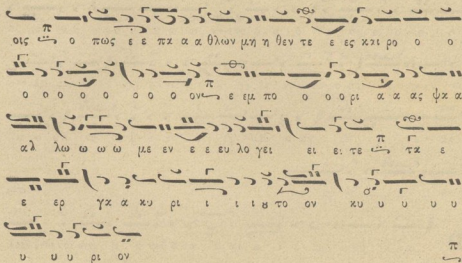 οις π ο πως ε ε πα α α θλων μη η θεν τε ε ες και ρο ο ο
ο ο ο ο ο ο ο ο ον π ε εμ πο ο ο ορι α α ας ψα α
αλ λω ω ω ω με εν ε ε ευ λο γει ει ει τε π τα ε
ε ερ γα α κυ ρι ι ι ι ȣ το ον κυ υ υ υ υ
υ υ υ ρι ον π